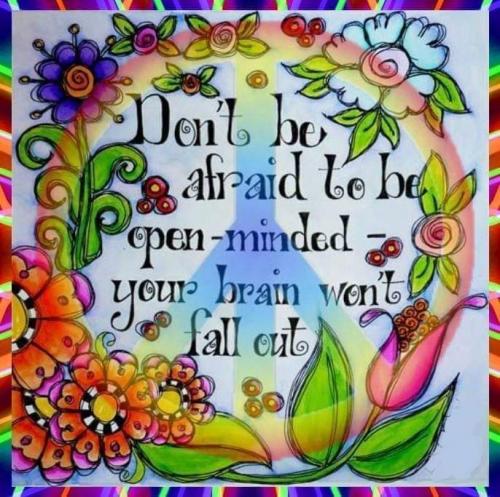 Don't be
afraid to be
open-minded -
your brain won't
fall out